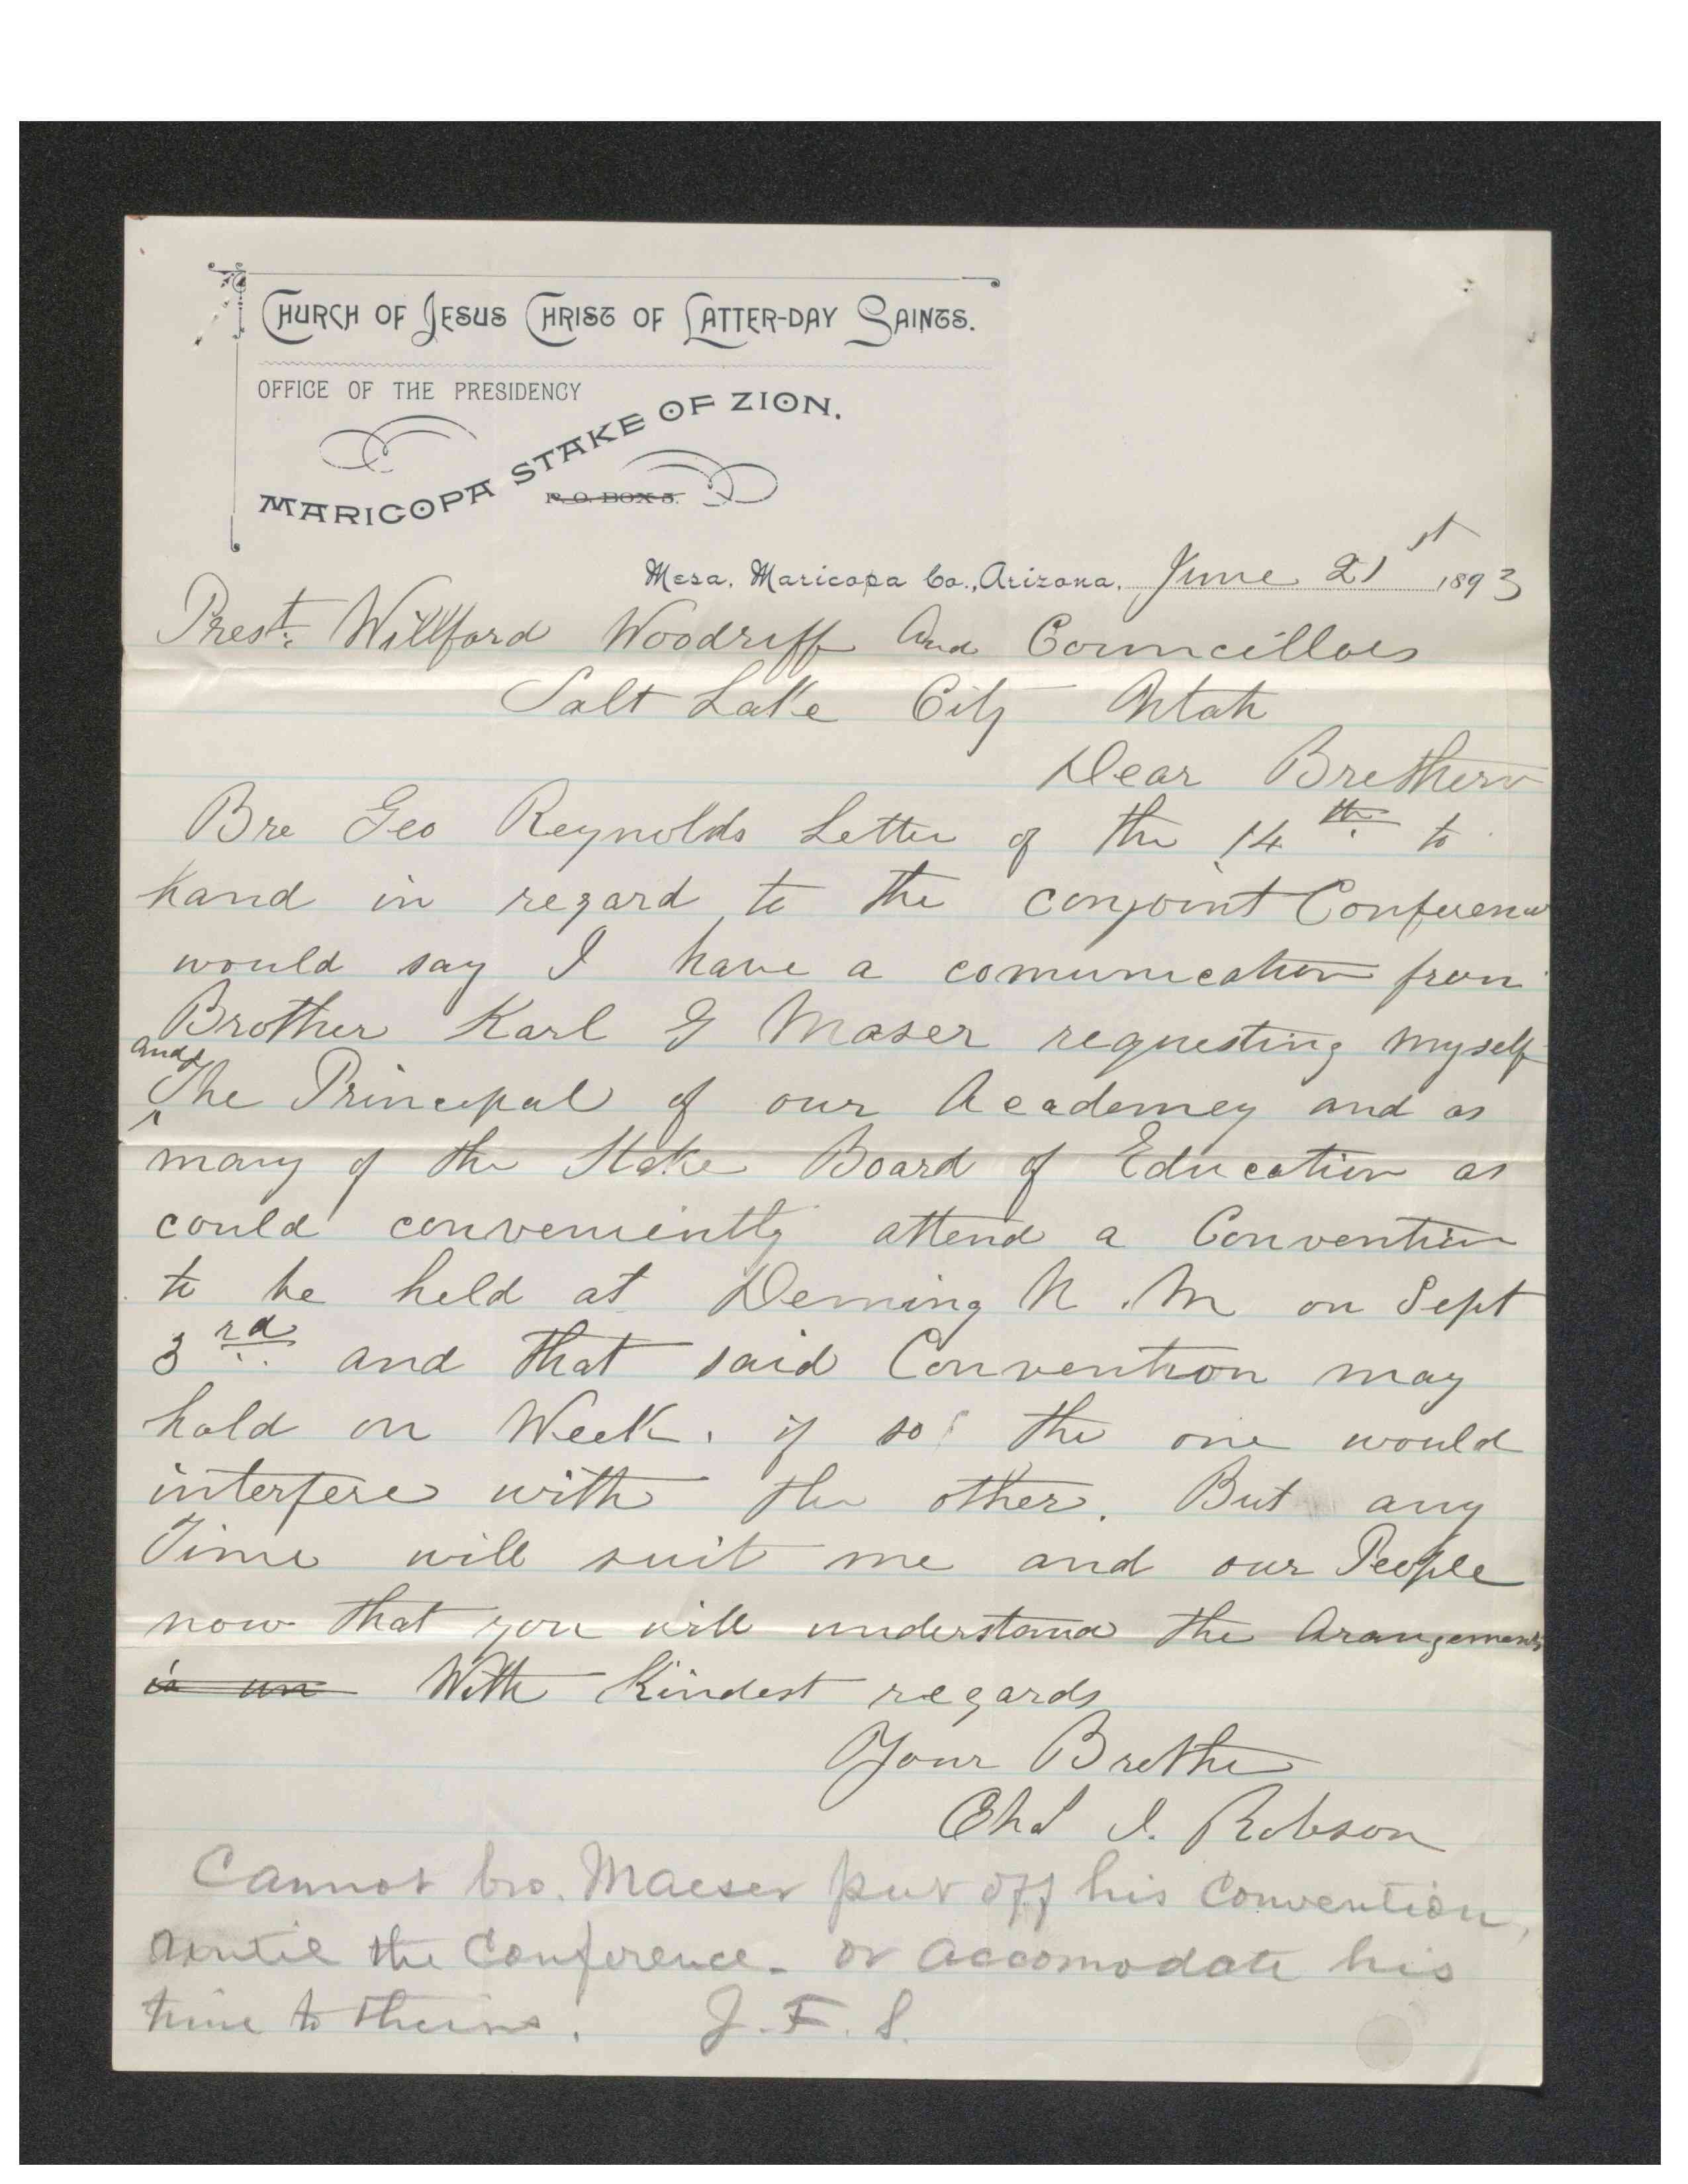 CHURCH OF JESUS CHRIST OF LATTER-DAY SAINTS.
OFFICE OF THE PRESIDENCY
MARICOPA STAKE OF ZION.
P. O. BOX 5.
Mesa, Maricopa Co., Arizona, June 21st 1893
Prest. Willford Woodruff And Councillors
Salt Lake City Utah
Dear Brethern
Bre Geo Reynolds Letter of the 14th to
hand in regard to the conjoint Conference
would say I have a comunication from
Brother Karl G Maser requesting myself
and
The Principal of our Academey and as
many of the Stake Board of Education as
could conveniently attend a Convention
to be held at Deming N. M on Sept
3rd and that said Convention may
hold on Week. if so the one would
interfere with the other. But any
Time will suit me and our People
now that you will understand the Arangements
is un With Kindest regards
Your Brother
Chas I. Robson
Cannot bro. Maeser put off his Convention,
until the Conference - or accomodate his
time to theirs. J. F. S.